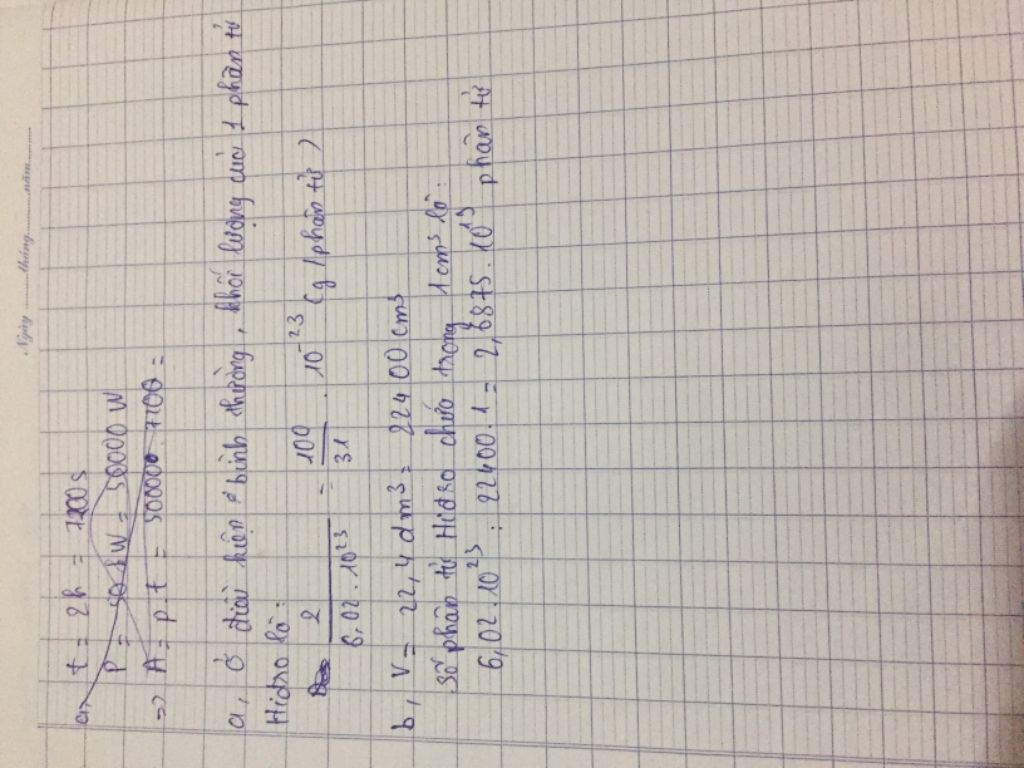 Ngày ........ tháng ........ năm ........
a, t = 2h = 7200 s
P = 50 kW = 50000 W
=> A = p.t = 50000.7200 =
a, ở điều kiện bình thường, khối lượng của 1 phân tử
Hidro là:
2 / 6,02.10²³ = 100/31 . 10⁻²³ (g/phân tử)
b, V = 22,4 dm³ = 22400 cm³
Số phân tử Hidro chứa trong 1 cm³ là:
6,02.10²³ : 22400.1 = 2,6875.10¹⁹ phân tử